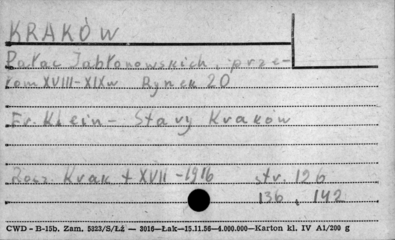 KRAKÓW
Pałac Jabłonowskich, prze-
łom XVIII-XIXw Rynek 20
Fr. Klein - Stary Kraków
Rocz. Krak t XVII - 1916 str. 126
136, 142
CWD - B-15b. Zam. 5323/S/Łź — 3016—Łak—15.11.56—4.000.000—Karton kl. IV A1/200 g